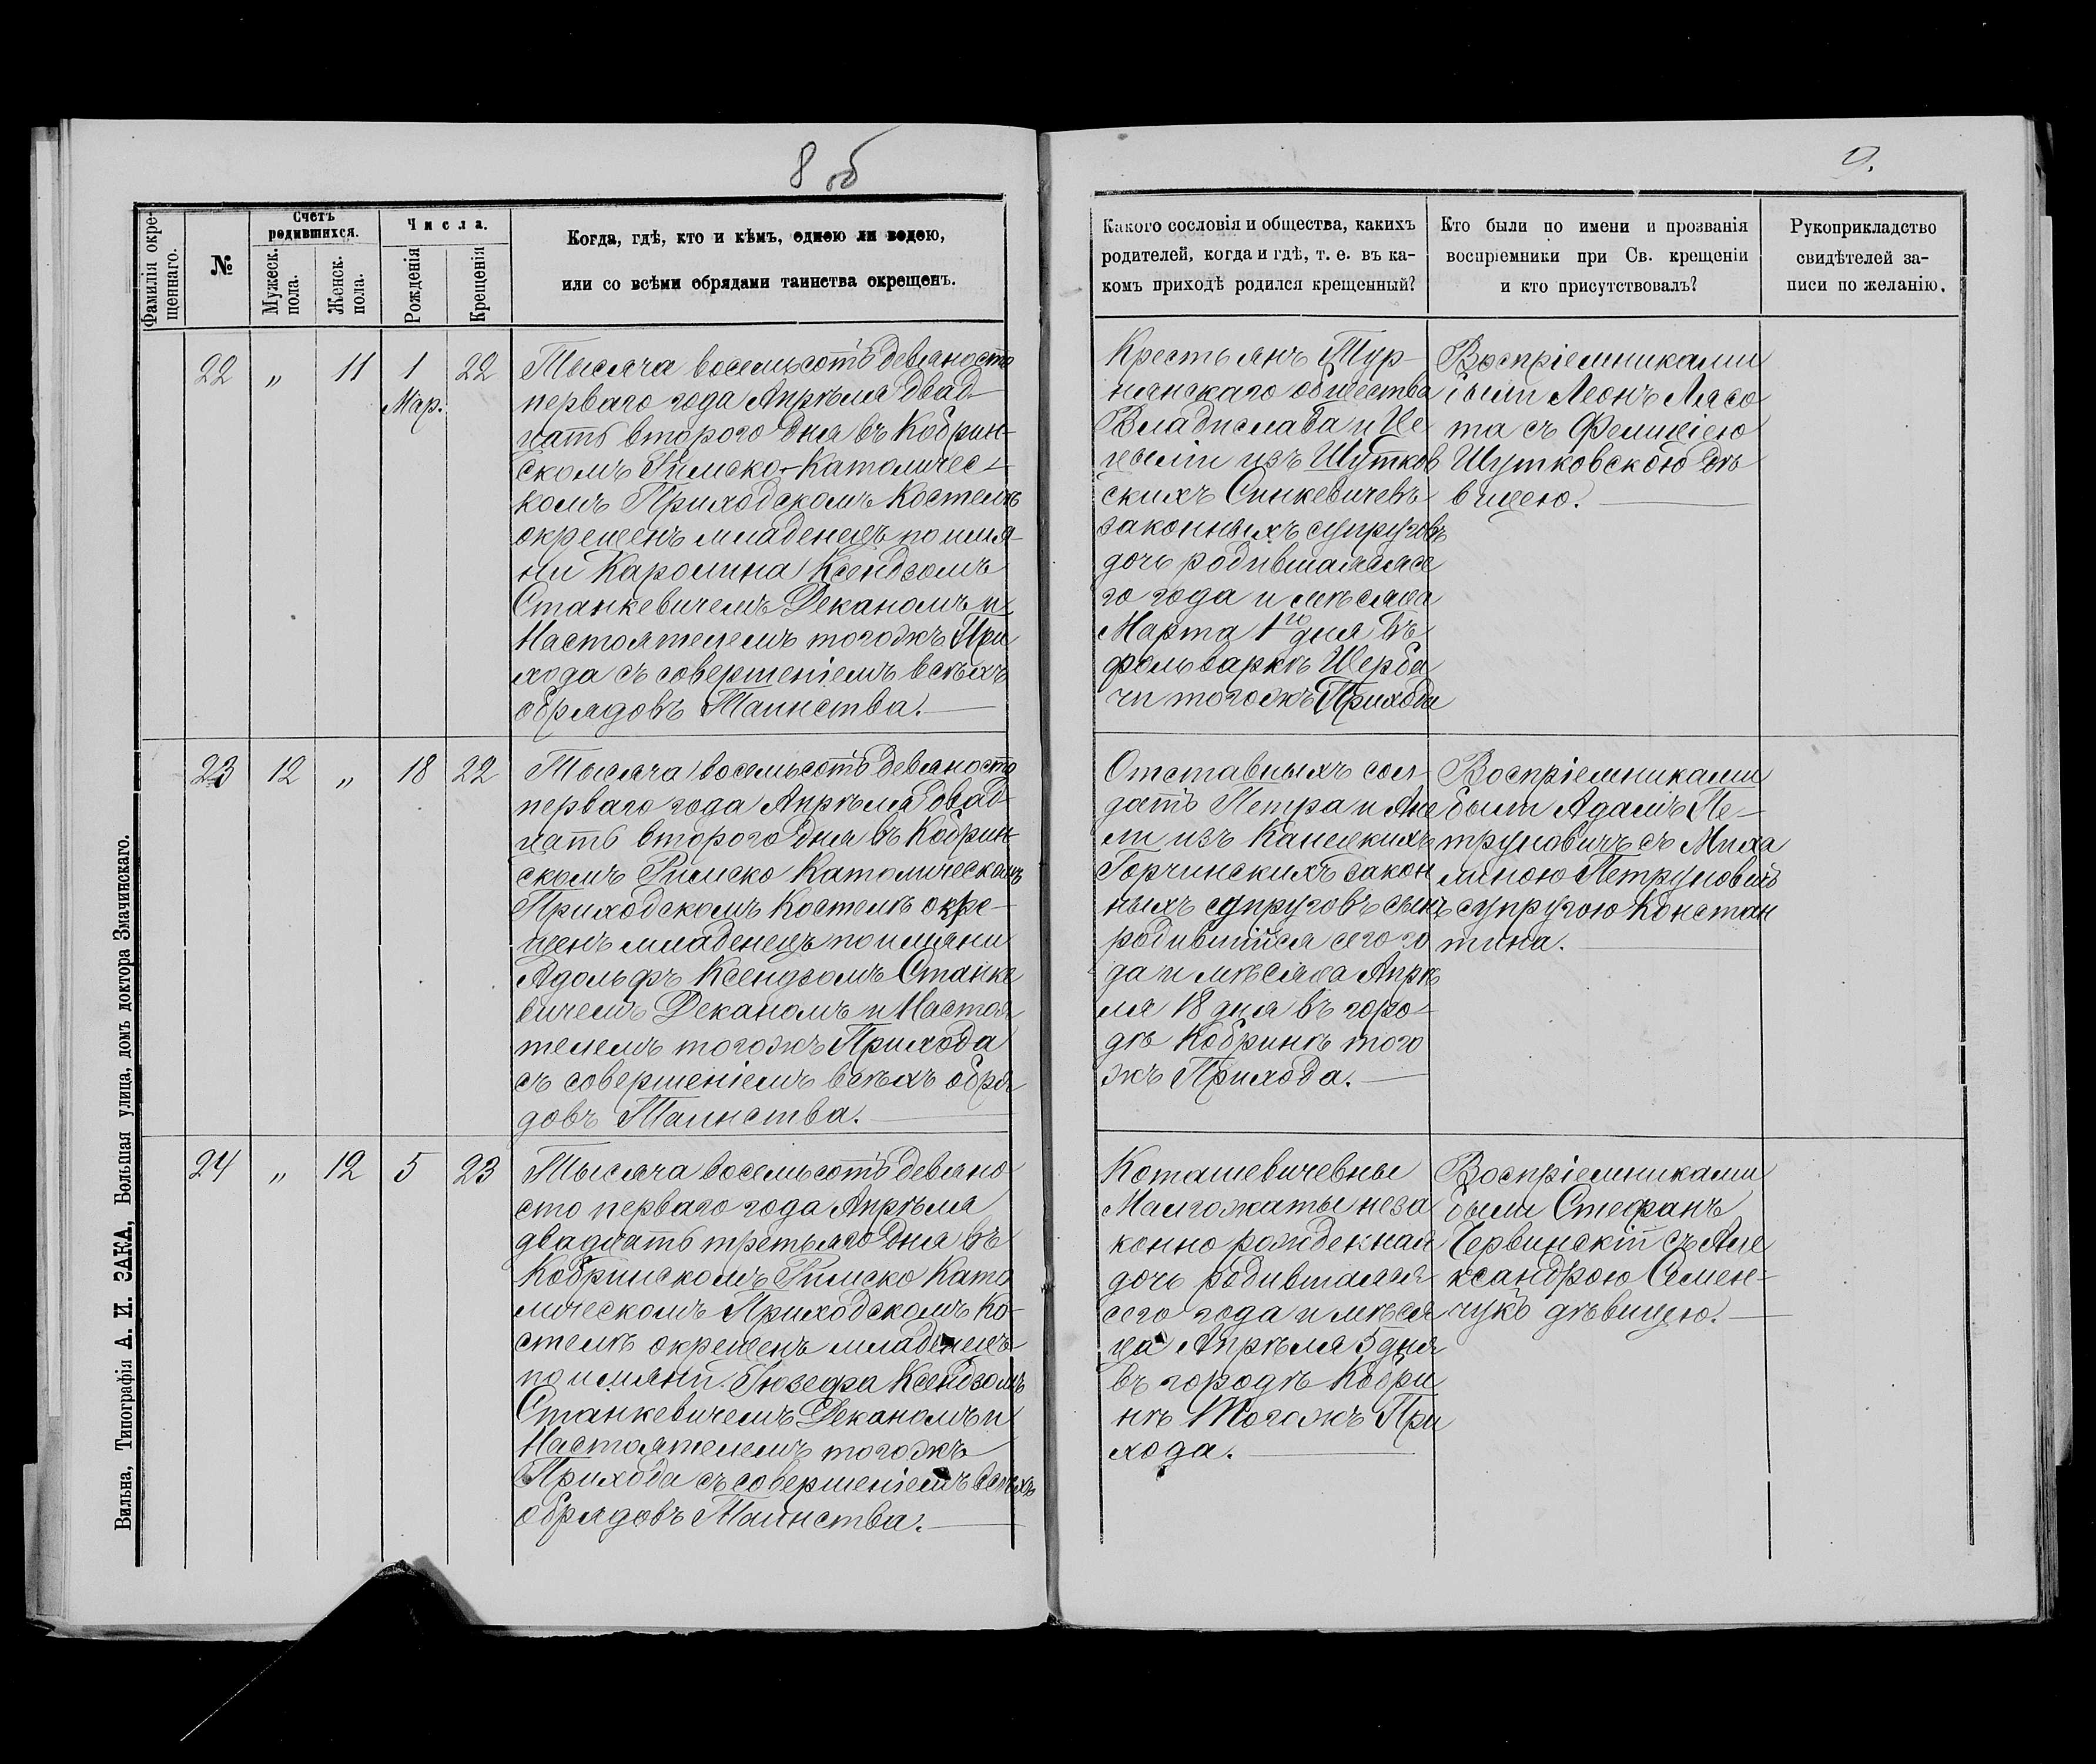 8 об
9.
Фамилія окре-
щеннаго.
№
Счетъ
родившихся.
Мужеск.
пола.
Женск.
пола.
Числа.
Рожденія
Крещенія
Когда, гдѣ, кто и кѣмъ, одною ли водою,
или со всѣми обрядами таинства окрещенъ.
Какого сословія и общества, какихъ
родителей, когда и гдѣ, т. е. въ ка-
комъ приходѣ родился крещенный?
Кто были по имени и прозванія
воспріемники при Св. крещеніи
и кто присутствовалъ?
Рукоприкладство
свидѣтелей за-
писи по желанію.
22 „ 11 1 22
Мар.
Тысяча восемьсотъ девяносто
перваго года Апрѣля двад-
цать второго дня въ Кобрин-
скомъ Римско-Католичес-
комъ Приходскомъ Костелѣ
окрещенъ младенецъ по имя-
ни Каролина Ксендзомъ
Станкевичемъ Деканомъ и
Настоятелемъ тогожъ При
хода съ совершеніемъ всѣхъ
обрядовъ Таинства.
Крестьянъ Тур-
нянскаго общества
Владислава и Це
цыліи изъ Шутков
скихъ Синкевичевъ
законныхъ супруговъ
дочь родившаяся се
го года и мѣсяца
Марта 1го дня въ
фольваркѣ Щерба
чи тогожъ Прихода
Воспріемниками
были Леонъ Лясо
та съ Фелиціею
Шутковскою дѣ
вицею.
23 12 „ 18 22
Тысяча восемьсотъ девяносто
перваго года Апрѣля двад-
цать второго дня въ Кобрин-
скомъ Римско Католическомъ
Приходскомъ Костелѣ окре-
щенъ младенецъ по имяни
Адольфъ Ксендзомъ Станке
вичемъ Деканомъ и Настоя
телемъ тогожъ Прихода
съ совершеніемъ всѣхъ обря
довъ Таинства.
Отставныхъ сол
датъ Петра и Ане
ли изъ Канецкихъ
Горчинскихъ закон
ныхъ супруговъ сынъ
родившійся сего го
да и мѣсяца Апрѣ
ля 18 дня въ горо-
дѣ Кобринѣ того
жъ Прихода.
Воспріемниками
были Адамъ Пе-
труновичъ съ Миха
линою Петруновичъ
супругою Констан
тина.
24 „ 12 5 23
Тысяча восемьсотъ девяно
сто перваго года Апрѣля
двадцать третьяго дня въ
Кобринскомъ Римско Като
лическомъ Приходскомъ Ко-
стелѣ окрещенъ младенецъ
по имяни Іюзефа Ксендзомъ
Станкевичемъ Деканомъ и
Настоятелемъ тогожъ
Прихода съ совершеніемъ всѣхъ
обрядовъ Таинства.
Коташевичевны
Малгожаты неза
конно рожденная
дочь родившаяся
сего года и мѣся
ца Апрѣля 5 дня
въ городѣ Кобри
нѣ тогожъ При
хода.
Воспріемниками
были Стефанъ
Червинскій съ Але
ксандрою Семен-
чукъ дѣвицею.
Вильна, Типографія А. И. ЗАКА, Большая улица, домъ доктора Змачинскаго.